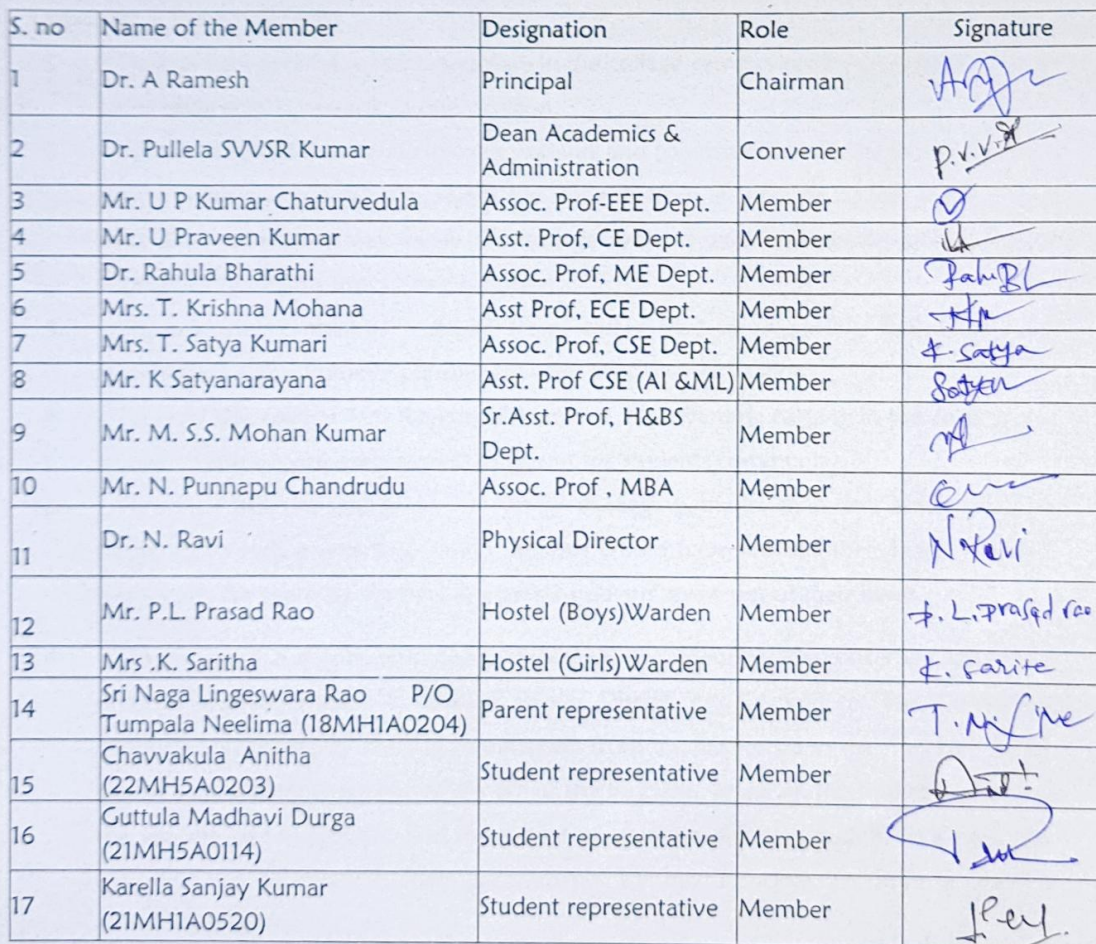 S. no Name of the Member Designation Role Signature
1 Dr. A Ramesh Principal Chairman
2 Dr. Pullela SVVSR Kumar Dean Academics &
Administration Convener P.V.V.S
3 Mr. U P Kumar Chaturvedula Assoc. Prof-EEE Dept. Member
4 Mr. U Praveen Kumar Asst. Prof, CE Dept. Member
5 Dr. Rahula Bharathi Assoc. Prof, ME Dept. Member
6 Mrs. T. Krishna Mohana Asst Prof, ECE Dept. Member
7 Mrs. T. Satya Kumari Assoc. Prof, CSE Dept. Member Satya
8 Mr. K Satyanarayana Asst. Prof CSE (AI &ML) Member
9 Mr. M. S.S. Mohan Kumar Sr.Asst. Prof, H&BS
Dept. Member
10 Mr. N. Punnapu Chandrudu Assoc. Prof , MBA Member
11 Dr. N. Ravi Physical Director Member N Ravi
12 Mr. P.L. Prasad Rao Hostel (Boys)Warden Member P. L. prasad rao
13 Mrs .K. Saritha Hostel (Girls)Warden Member K. Sarite
14 Sri Naga Lingeswara Rao P/O
Tumpala Neelima (18MH1A0204) Parent representative Member
15 Chavvakula Anitha
(22MH5A0203) Student representative Member
16 Guttula Madhavi Durga
(21MH5A0114) Student representative Member
17 Karella Sanjay Kumar
(21MH1A0520) Student representative Member